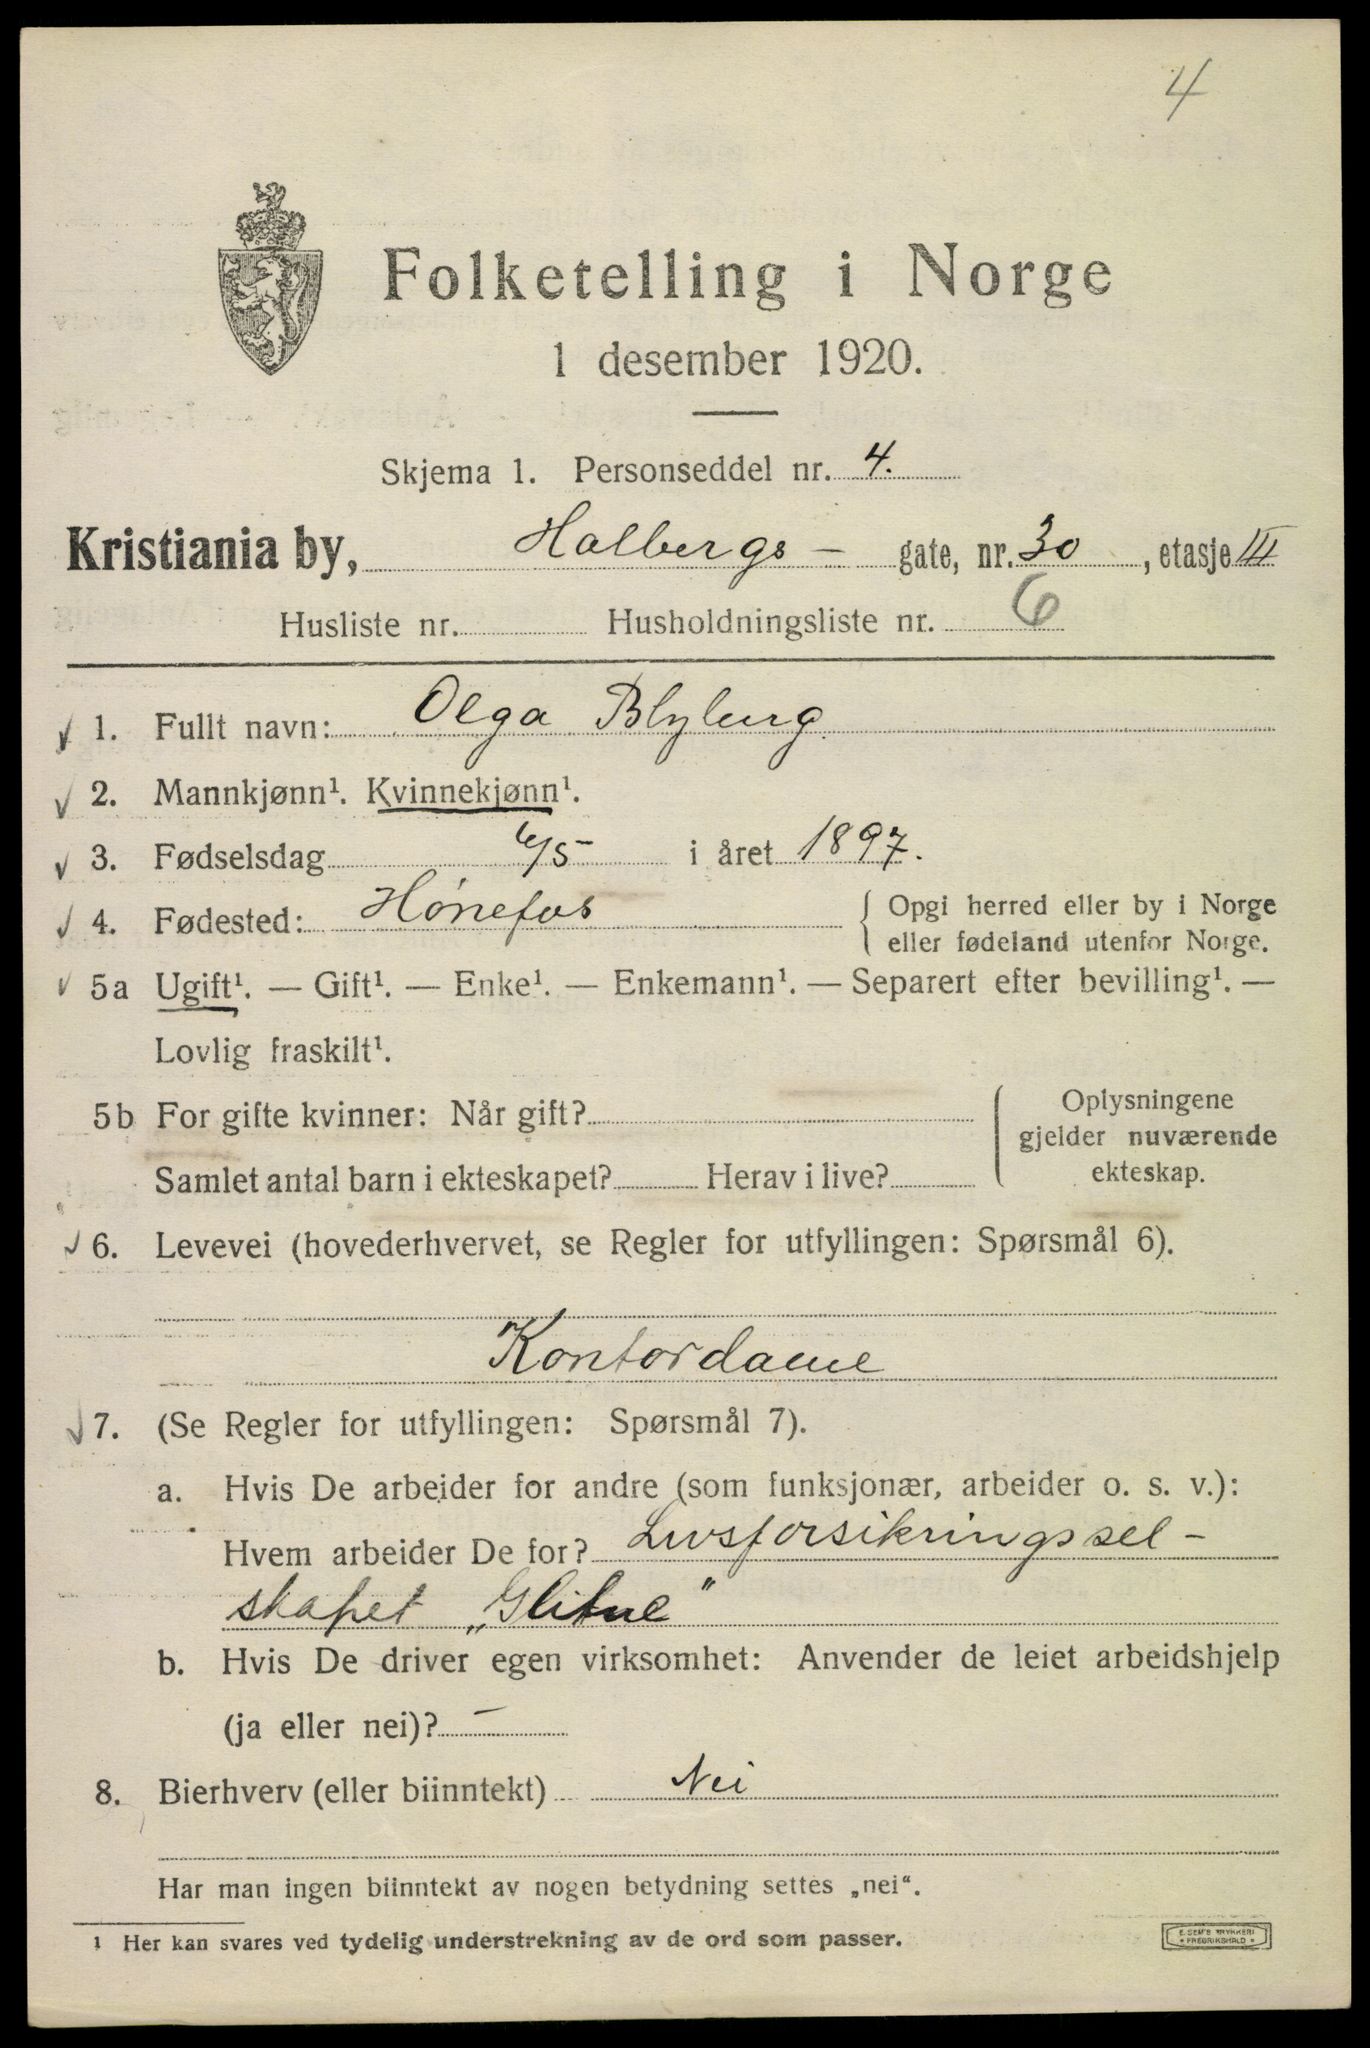 4
Folketelling i Norge
1 desember 1920.
Skjema 1. Personseddel nr. 4.
Kristiania by, Holbergs - gate, nr. 30, etasje III
Husliste nr. Husholdningsliste nr. 6
1. Fullt navn: Olga Blyberg
2. Mannkjønn¹. Kvinnekjønn¹.
3. Fødselsdag 6/5 i året 1897.
4. Fødested: Hønefos { Opgi herred eller by i Norge
eller fødeland utenfor Norge.
5a Ugift¹. — Gift¹. — Enke¹. — Enkemann¹. — Separert efter bevilling¹. —
Lovlig fraskilt¹.
5b For gifte kvinner: Når gift? { Oplysningene
gjelder nuværende
Samlet antal barn i ekteskapet? Herav i live? ekteskap.
6. Levevei (hovederhvervet, se Regler for utfyllingen: Spørsmål 6).
Kontordame
7. (Se Regler for utfyllingen: Spørsmål 7).
a. Hvis De arbeider for andre (som funksjonær, arbeider o. s. v.):
Hvem arbeider De for? Livsforsikringssel-
skapet „Glitne"
b. Hvis De driver egen virksomhet: Anvender de leiet arbeidshjelp
(ja eller nei)? -
8. Bierhverv (eller biinntekt) Nei
Har man ingen biinntekt av nogen betydning settes „nei“.
1 Her kan svares ved tydelig understrekning av de ord som passer.
E. SEM'S TRYKKERI
FREDRIKSHALD